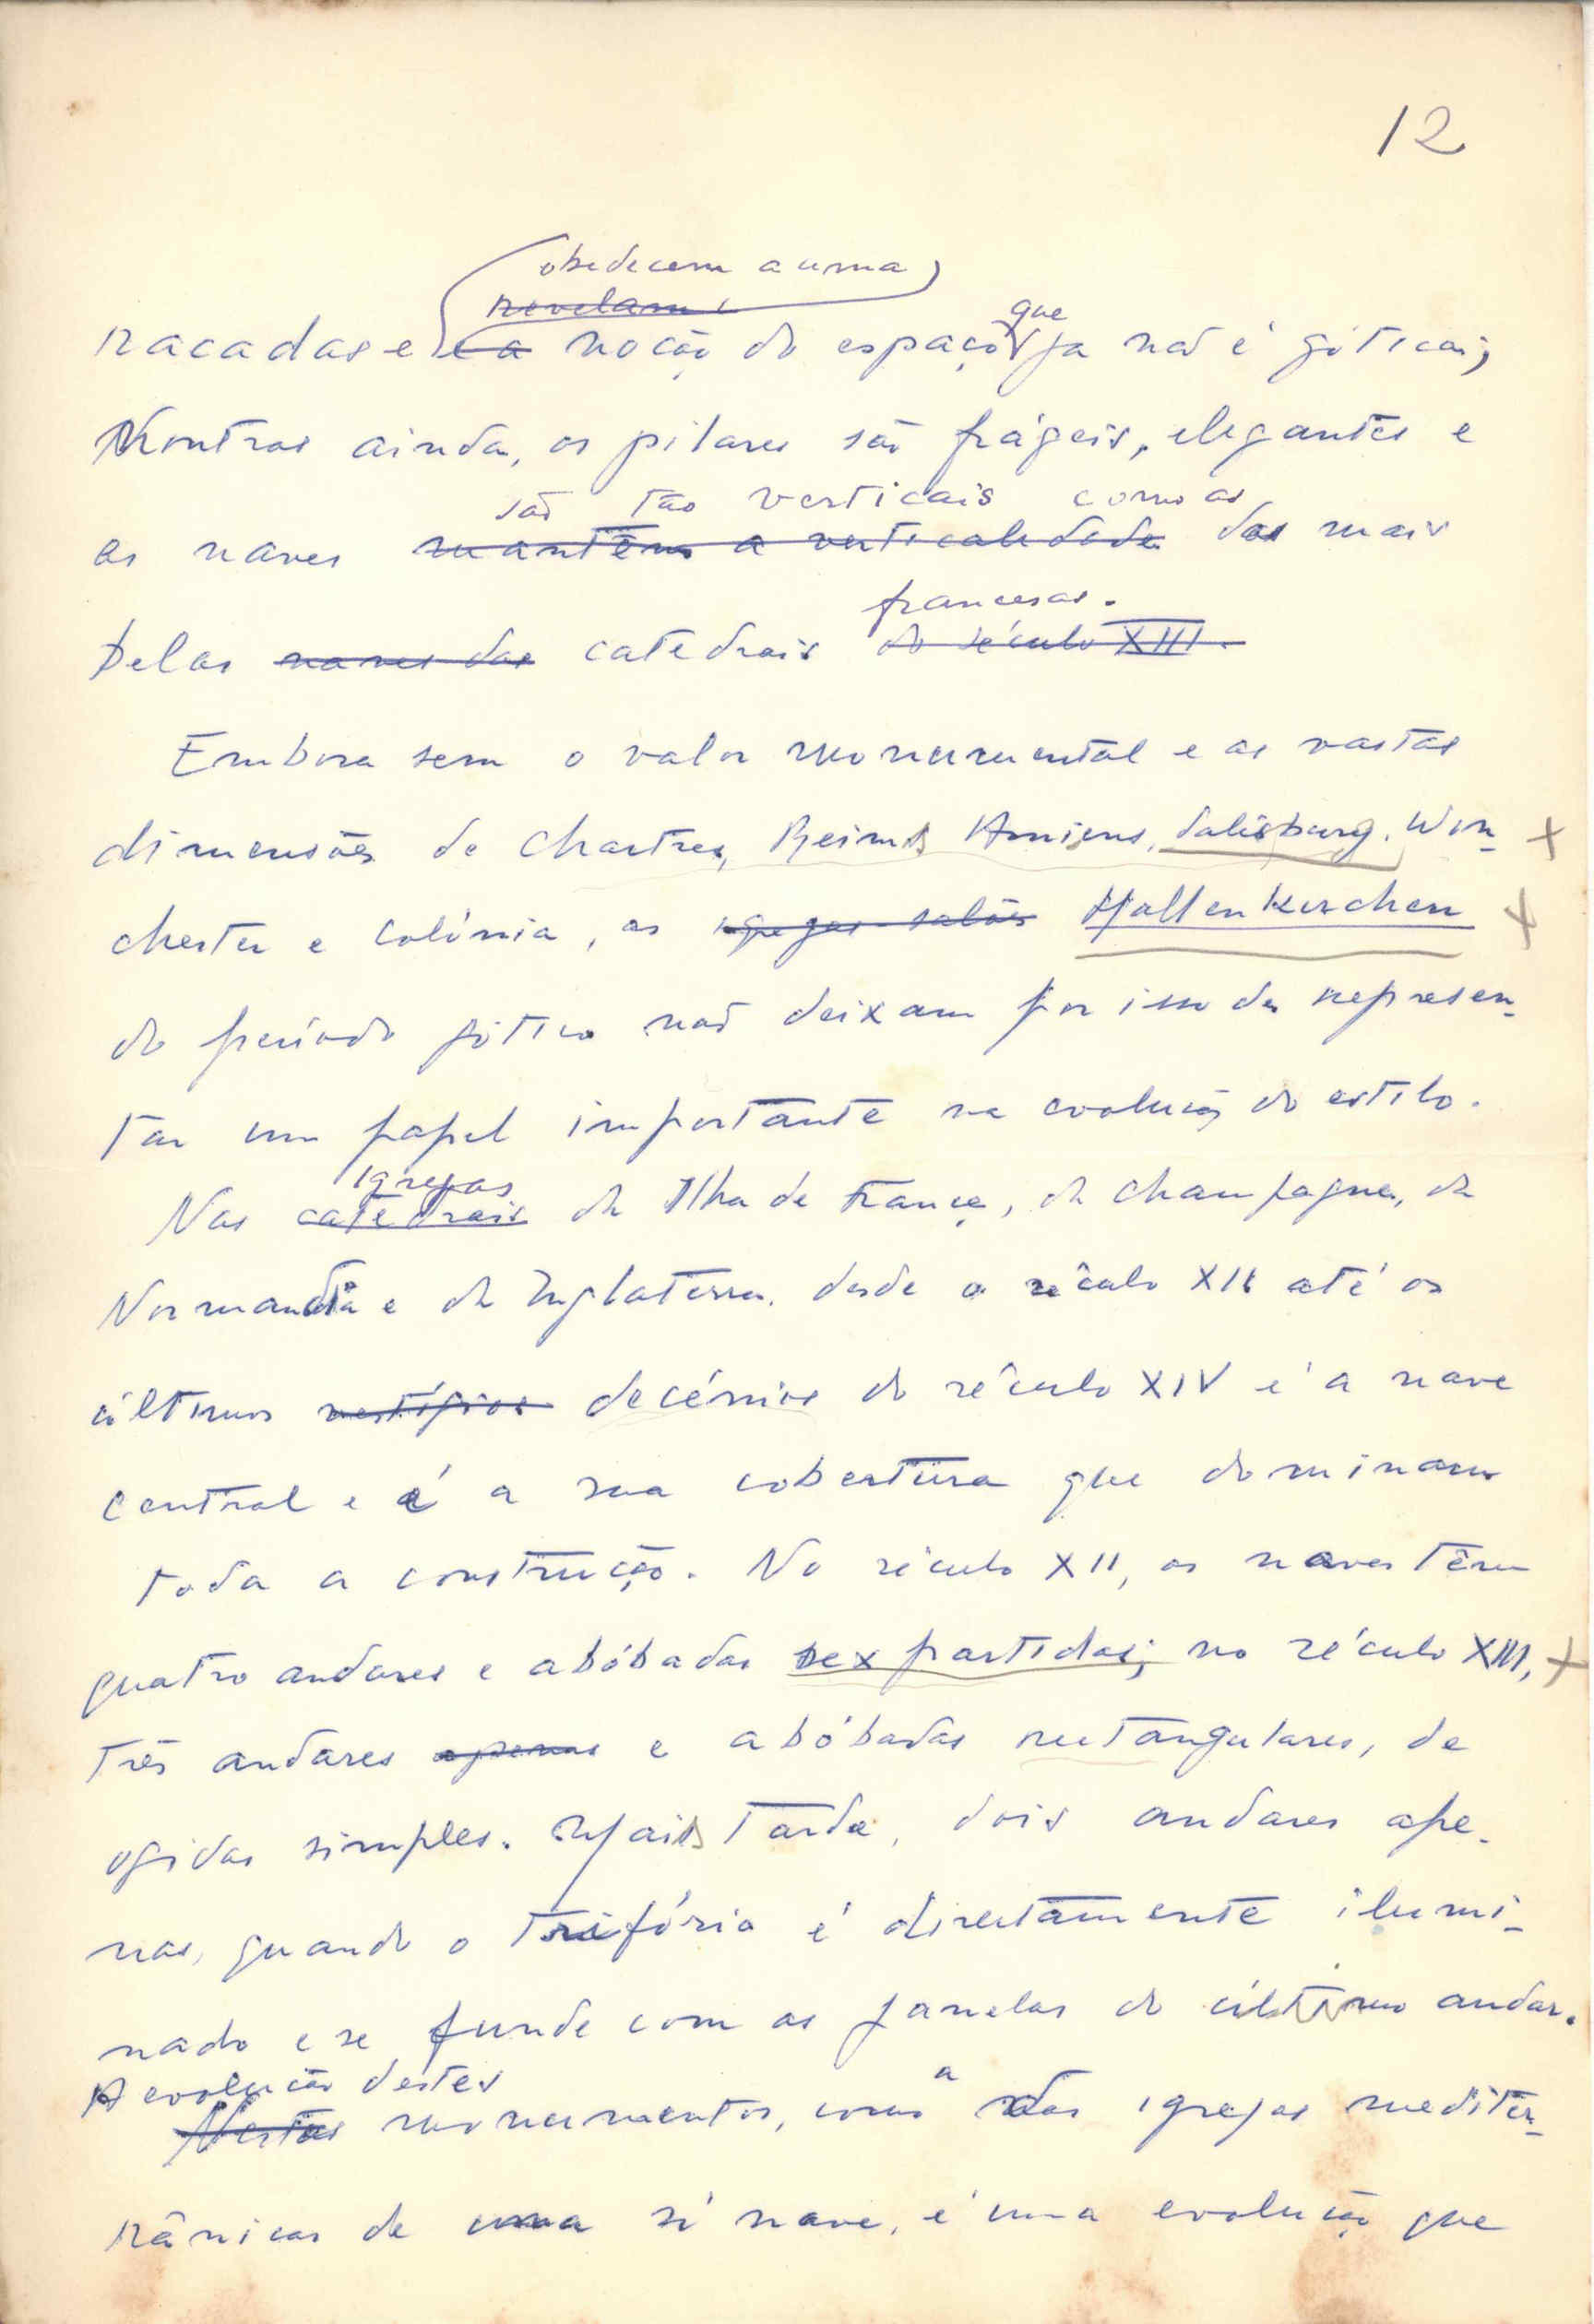 12
obedecem a uma
revelam
racadas e e a noção do espaço que já não é gótica;
Noutras ainda, os pilares são frágeis, elegantes e
são tão verticais como as
as naves mantêm a verticalidade das mais
francesas.
belas naves das catedrais do século XIII.
Embora sem o valor monumental e as vastas
dimensões de Chartres, Reims Amiens, Salisburg. Win-
chester e Colónia, as igrejas-salões Hallenkirchen
do período gótico não deixam por isso de represen-
tar um papel importante na evolução do estilo.
igrejas
Nas catedrais da Ilha de França, da Champagne, da
Normandia e da Inglaterra, desde o século XII até os
últimos vestígios decénios do século XIV é a nave
central e é a sua cobertura que dominam
toda a construção. No século XII, as naves têm
quatro andares e abóbadas sexpartidas; no século XIII,
três andares apenas e abóbadas rectangulares, de
ogivas simples. Mais tarde, dois andares ape-
nas, quando o trifório é directamente ilumi-
nado e se funde com as janelas do último andar.
A evolução destes
Nestes monumentos, como a das igrejas mediter-
rânicas de uma só nave, é uma evolução que